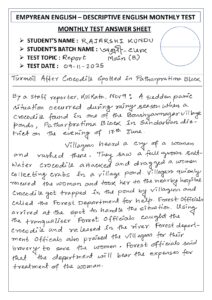 EMPYREAN ENGLISH – DESCRIPTIVE ENGLISH MONTHLY TEST
MONTHLY TEST ANSWER SHEET
➤ STUDENT'S NAME : RAJARSHI KUNDU
➤ STUDENT'S BATCH NAME : WBCS + Clerk
➤ TEST TOPIC : Report Main (B)
➤ TEST DATE : 09-11-2025
Turmoil After Crocodile Spotted in Patharpratima Block
By a staff reporter, Kolkata, Nov 9: A sudden panic
situation occurred during rainy season when a
crocodile found in one of the village
Ponds, Patharpratima Block in Sundarban dis-
trict on the evening of 17th June
Villagers heard a cry of a woman
and rushed there. They saw a full grown salt-
water crocodile attacked and dragged a women
collecting crabs in a village pond. Villagers quickly
rescued the woman and took her to the nearby hospital.
Crocodile got trapped in the pond by villagers and
called the Forest Department for help. Forest Officials
arrived at the spot to handle the situation. Using
the tranquilizer Forest officials caught the
crocodile and released in the river. Forest depart-
ment Officials also praised the villagers for their
bravery to save the woman. Forest officials said
that the department will bear the expenses for
treatment of the woman.